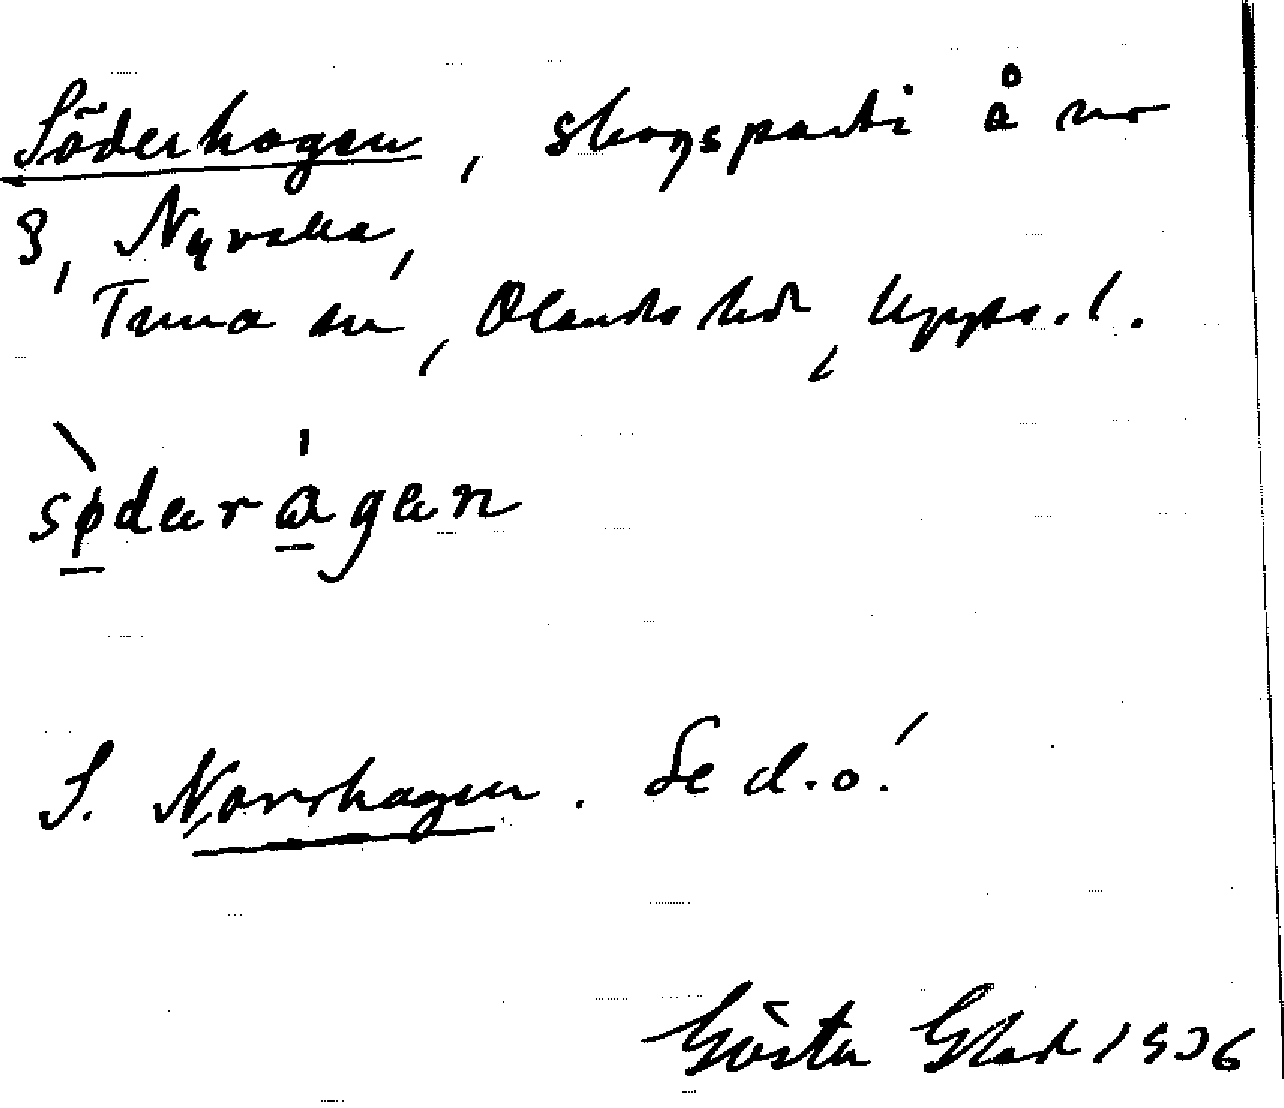 Söderhagen, skogsparti å nr
3, Nyvalla,
Tuna sn, Olands hd, Upps. l.
sø̀darágan
S. Norrhagen. Se d.o!
Gösta Glad 1936